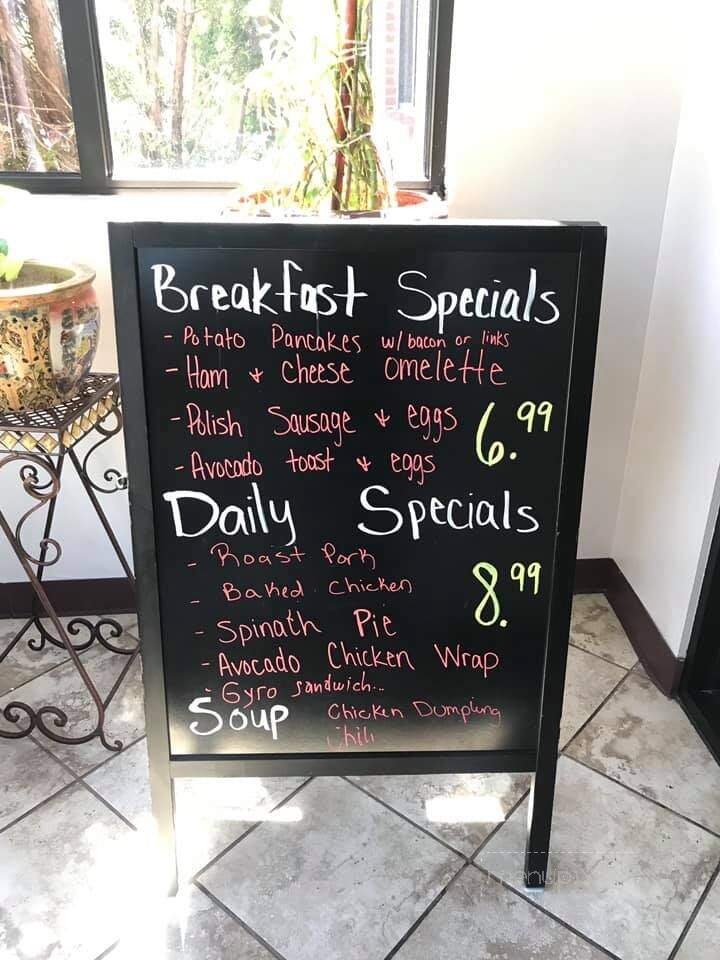 Breakfast Specials
- Potato Pancakes w/ bacon or links
- Ham & cheese omelette
- Polish Sausage & eggs 6.99
- Avocado toast & eggs
Daily Specials
- Roast Pork
- Baked Chicken 8.99
- Spinath Pie
- Avocado Chicken Wrap
- Gyro sandwich...
Soup Chicken Dumpling
Chili